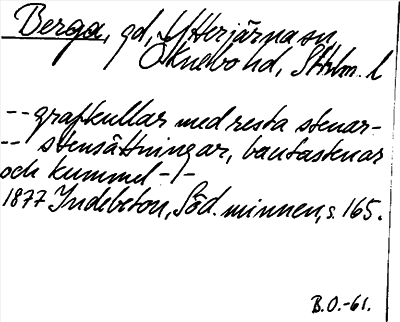 Berga, gd, Ytterjärna sn,
Öknebo hd, Sthlm. l
-- grafkullar med resta stenar-
-- stensättningar, bautastenar
och kummel --
1877 Indebetou, Söd. minnen, s. 165.
B.O.-61.